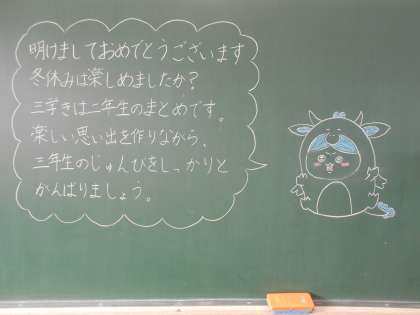 明けましておめでとうございます
冬休みは楽しめましたか?
三学きは二年生のまとめです。
楽しい思い出を作りながら、
三年生のじゅんびをしっかりと
がんばりましょう。